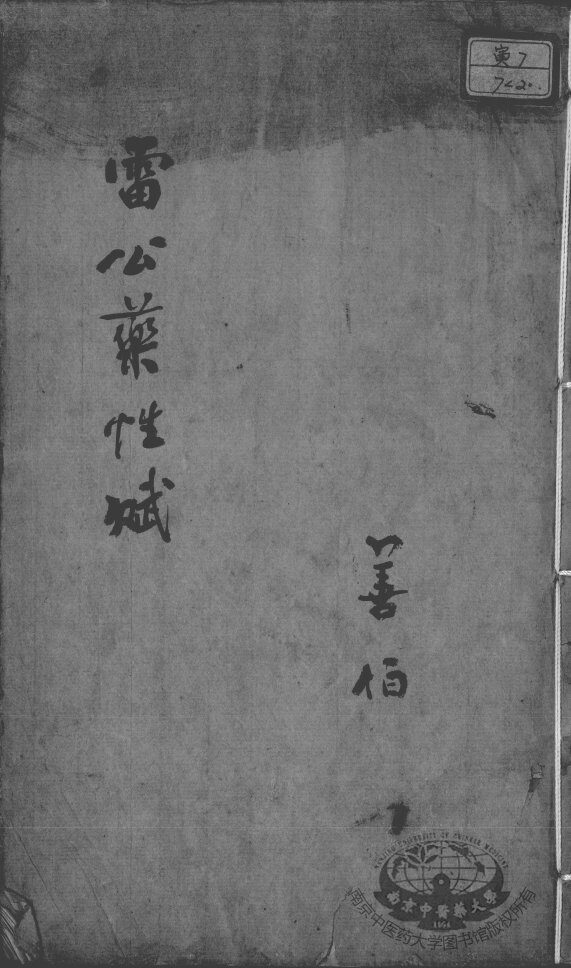 寅7
7420.
雷公藥性賦
善伯
NANJING UNIVERSITY OF CHINESE MEDICINE
南京中醫藥大學
1954
南京中医药大学图书馆版权所有